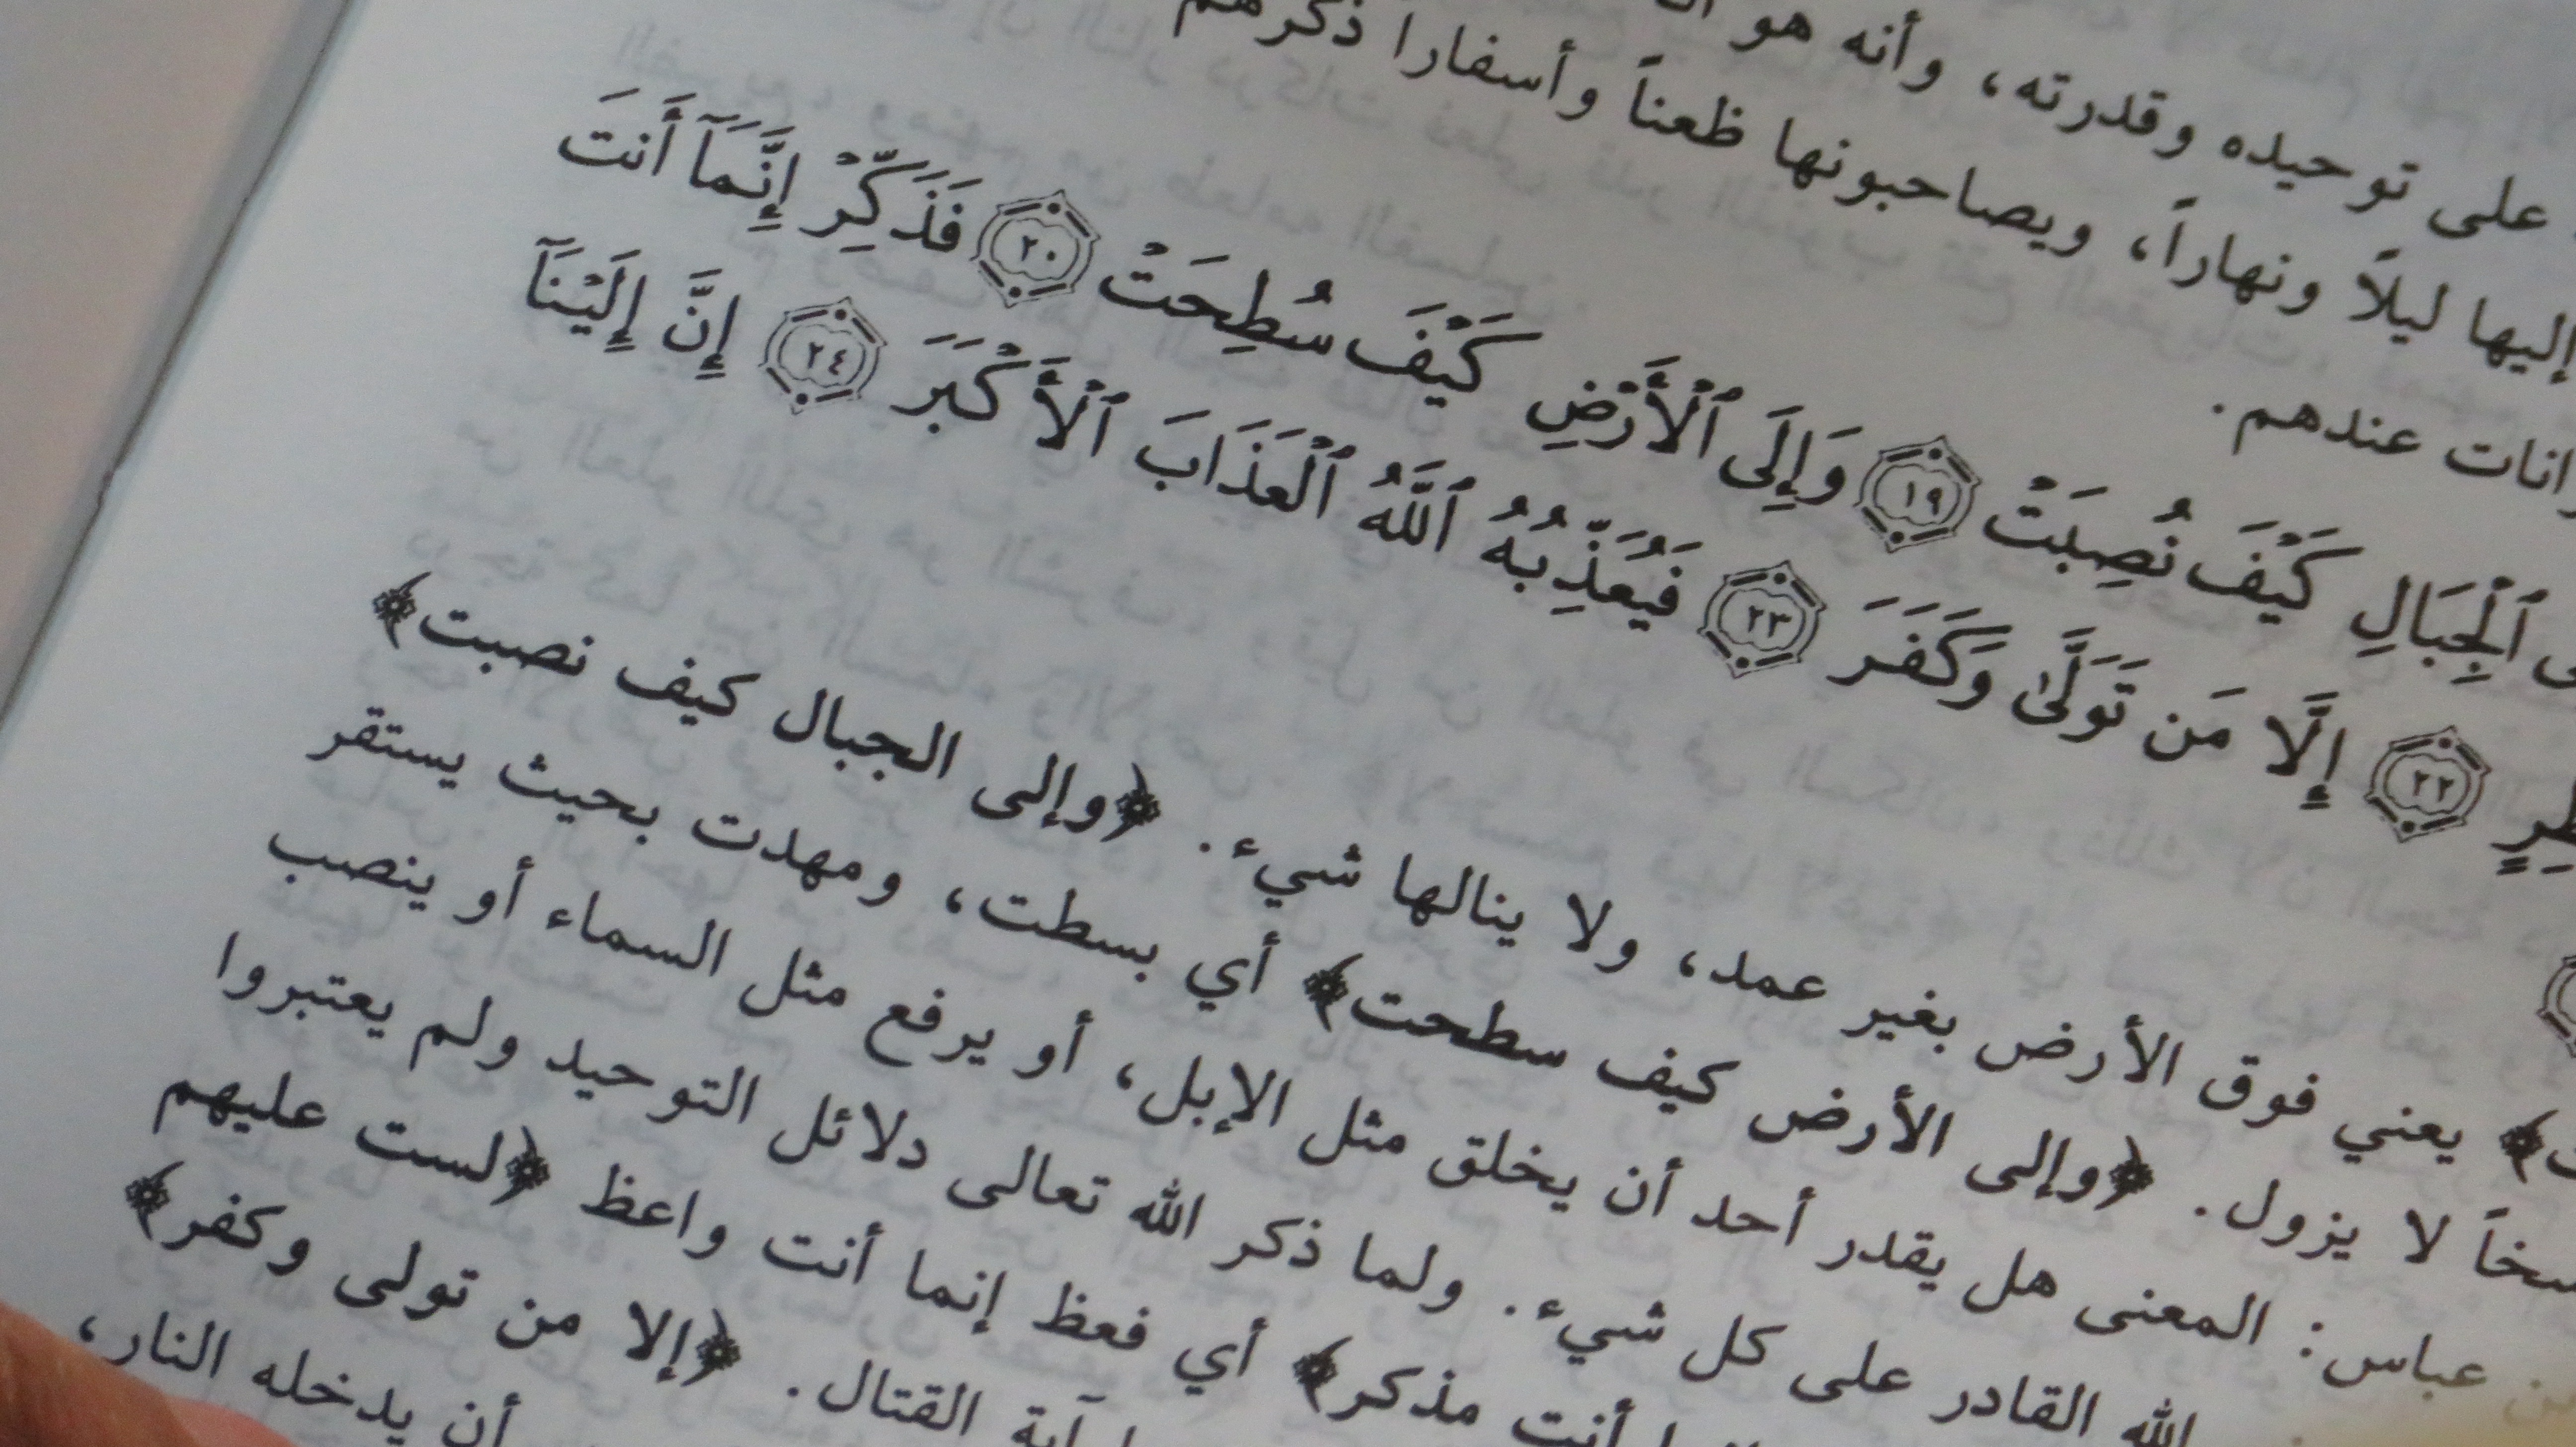 على توحيده وقدرته، وأنه هو
إليها ليلاً ونهاراً، ويصاحبونها ظعناً وأسفاراً ذكرهم
عندهم.
ٱلْجِبَالِ كَيْفَ نُصِبَتْ ١٩ وَإِلَى ٱلْأَرْضِ كَيْفَ سُطِحَتْ ٢٠ فَذَكِّرْ إِنَّمَآ أَنتَ
٢٢ إِلَّا مَن تَوَلَّىٰ وَكَفَرَ ٢٣ فَيُعَذِّبُهُ ٱللَّهُ ٱلْعَذَابَ ٱلْأَكْبَرَ ٢٤ إِنَّ إِلَيْنَآ
﴾ يعني فوق الأرض بغير عمد، ولا ينالها شيء. ﴿وإلى الجبال كيف نصبت﴾
لا يزول. ﴿وإلى الأرض كيف سطحت﴾ أي بسطت، ومهدت بحيث يستقر
عباس: المعنى هل يقدر أحد أن يخلق مثل الإبل، أو يرفع مثل السماء أو ينصب
الله القادر على كل شيء. ولما ذكر الله تعالى دلائل التوحيد ولم يعتبروا
أنت مذكر﴾ أي فعظ إنما أنت واعظ ﴿لست عليهم
آية القتال. ﴿إلا من تولى وكفر﴾
أن يدخله النار،